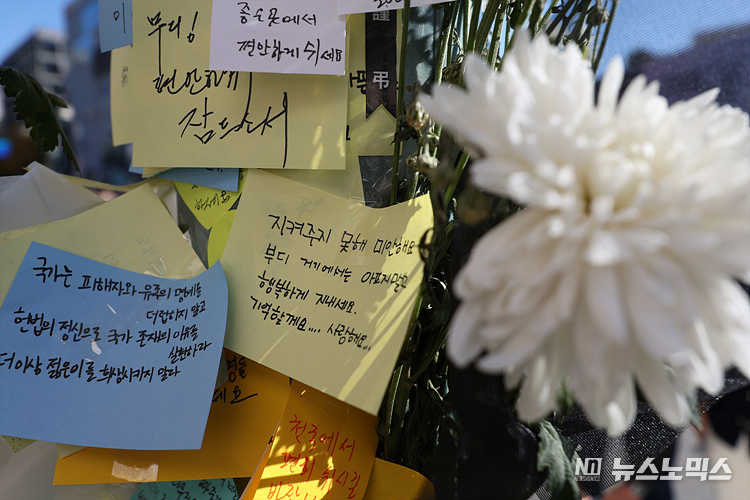 좋은곳에서
편안하게 쉬세요
편안하게
잠드소서
지켜주지 못해 미안해요
부디 거기에서는 아프지말고
행복하게 지내세요.
기억할게요.... 사랑해요..
국가는 피해자와 유족의 명예를
더럽히지 말고
헌법의 정신으로 국가 존재의 이유를
실현하라
더이상 젊은이를 희생시키지 말라
천국에서
편히 쉬시길
뉴스노믹스
NEWSNOMICS